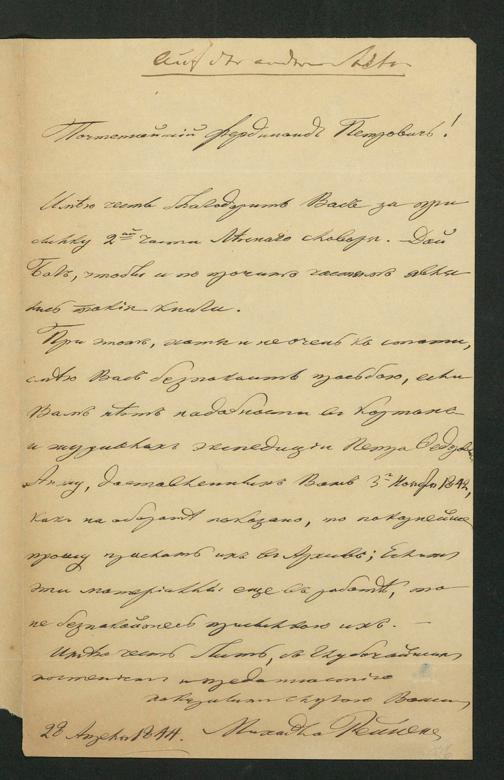 Auf der andern Seite
Почтеннѣйшій Фердинандъ Петровичъ!
Имѣю честь благодарить Васъ за при
сылку 2ой части Лѣснаго словаря. Дай
Богъ, чтобы и по прочимъ частямъ явля
лись такія книги.
При этомъ, хотя и не очень къ стати,
смѣю Васъ безпокоить просьбою, если
Вамъ нѣтъ надобности въ картахъ
и журналахъ экспедиціи Петра Ѳедоров
Анжу, доставленныхъ Вамъ 3го Ноября 1842,
какъ на оборотѣ показано, то покорнѣйше
прошу прислать ихъ въ Архивъ; Если
эти матеріалы еще въ работѣ, то
не безпокойтесь присылкою ихъ. —
Имѣю честь быть, съ глубочайшимъ
почтеніемъ и преданностію
покорнымъ слугою Вашимъ
28 1844. Михайло Рейнеке